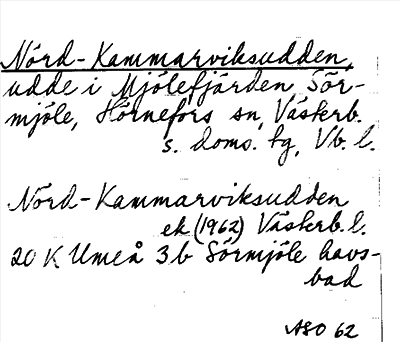 Nörd-Kammarviksudden,
udde i Mjölefjärden, Sör-
mjöle, Hörnefors sn, Västerb.
s. doms. tg, Vb. l.
Nörd-Kammarviksudden
ek (1962) Västerb. l.
20 K Umeå 3b Sörmjöle havs-
bad
ASO 62